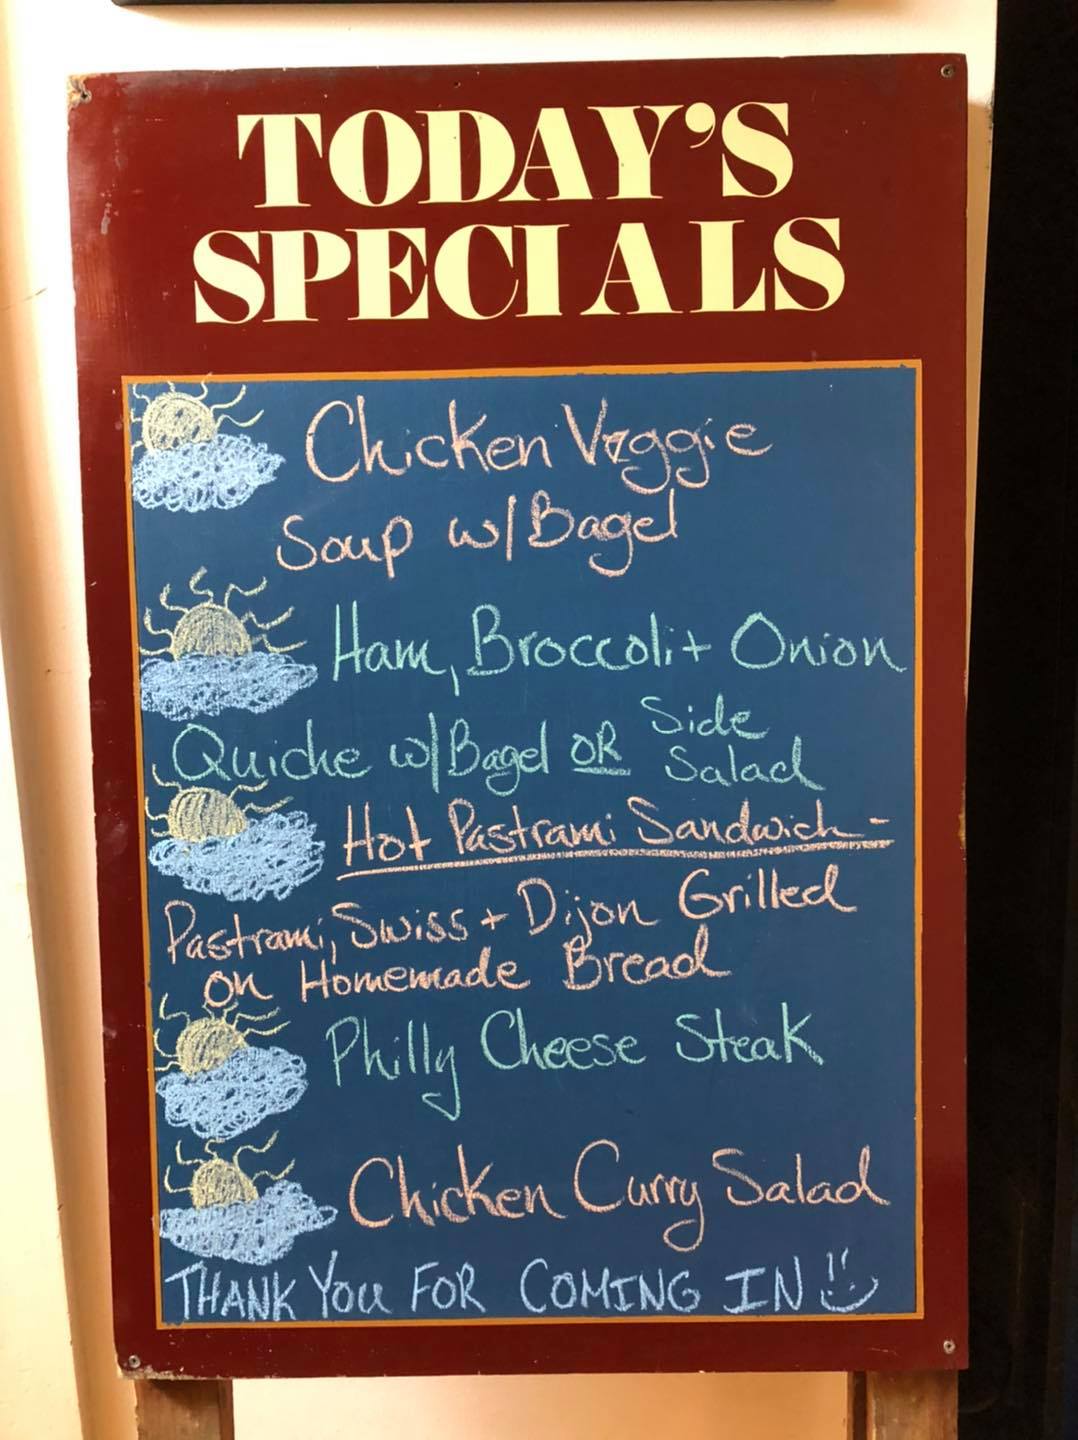 TODAY'S
SPECIALS
Chicken Veggie
Soup w/Bagel
Ham, Broccoli + Onion
Quiche w/Bagel OR Side Salad
Hot Pastrami Sandwich -
Pastrami, Swiss + Dijon Grilled
on Homemade Bread
Philly Cheese Steak
Chicken Curry Salad
THANK YOU FOR COMING IN